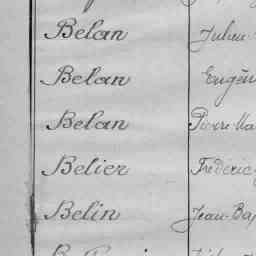 Belan Julien
Belan Eugèn
Belan Pierre Ma
Belier Frédéric
Belin Jean-Bap